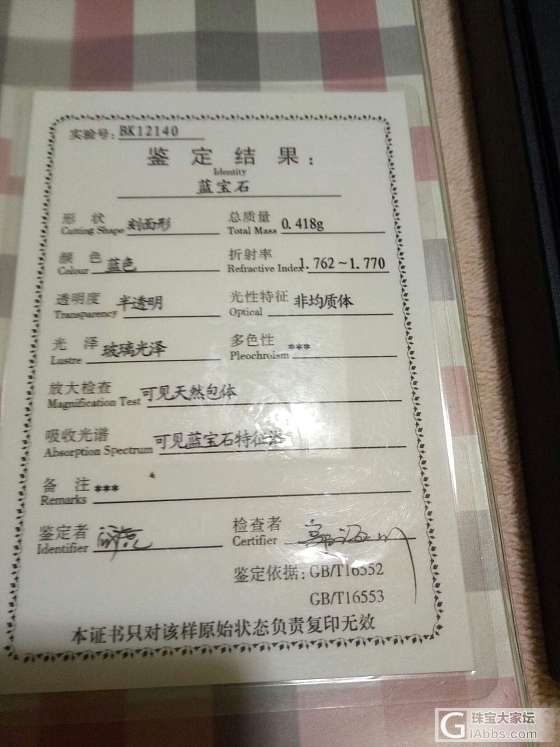 实验号: BK12140
鉴 定 结 果:
Identity
蓝宝石
形 状 刻面形 总质量 0.418g
Cutting Shape Total Mass
颜 色 蓝色 折射率 1.762~1.770
Colour Refractive Index
透明度 半透明 光性特征 非均质体
Transparency Optical
光 泽 玻璃光泽 多色性 ***
Lustre Pleochroism
放大检查 可见天然包体
Magnification Test
吸收光谱 可见蓝宝石特征谱
Absorption Spectrum
备 注 ***
Remarks
鉴定者 检查者
Identifier Certifier
鉴定依据: GB/T16552
GB/T16553
本证书只对该样原始状态负责复印无效
G 珠宝大家坛
iAbbs.com